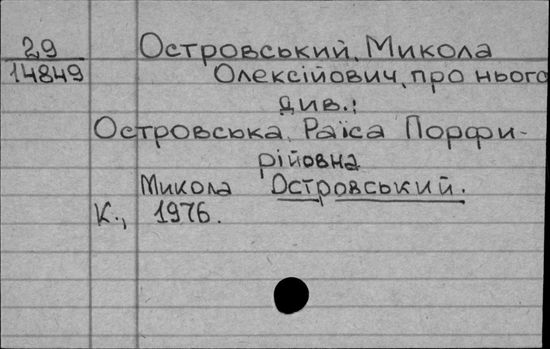 29
14849
Островський, Микола
Олексійович, про нього
див.:
Островська, Раїса Порфи-
рійовна
Микола Островський.
К., 1976.